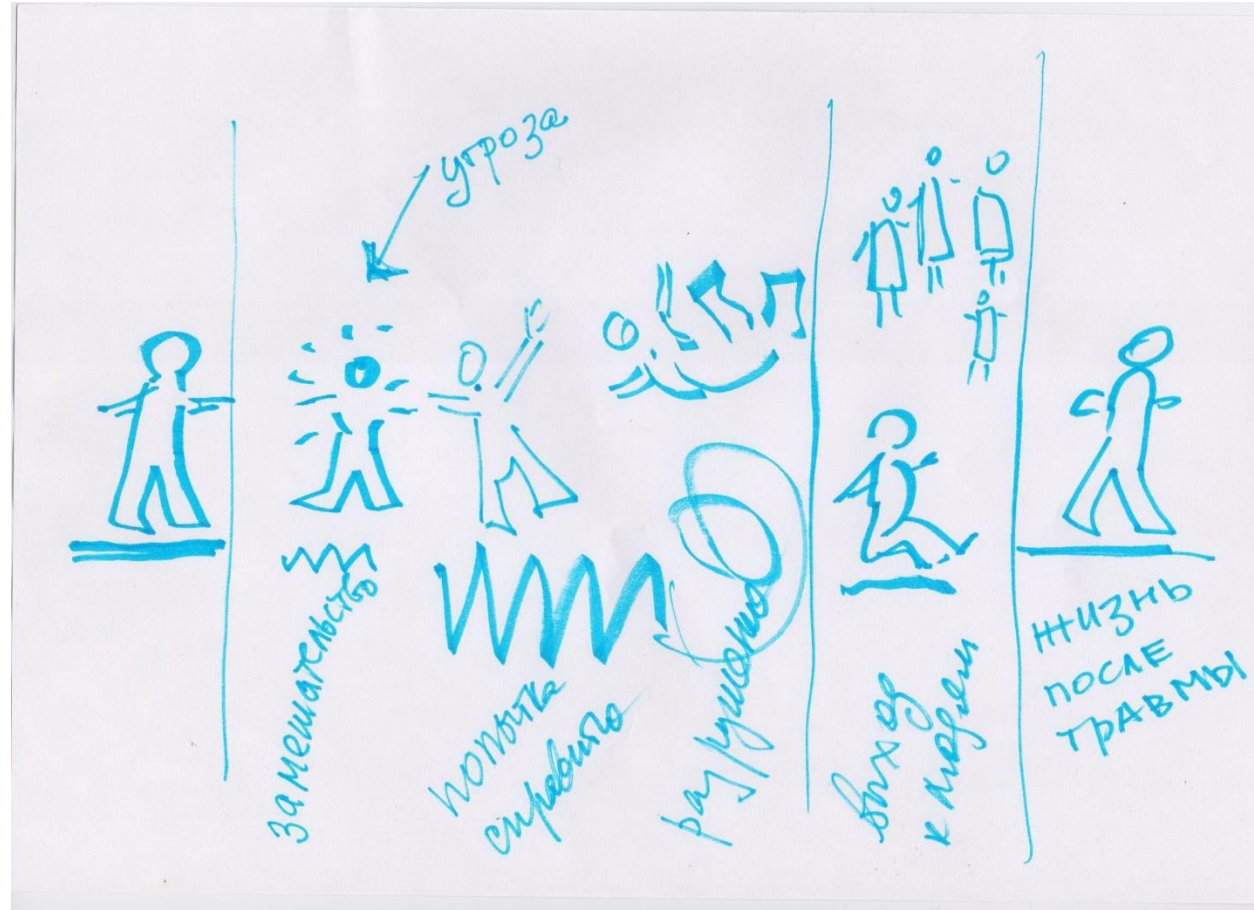 угроза
замешательство
попытка
справиться
разрушение
выход
к людям
жизнь
после
травмы